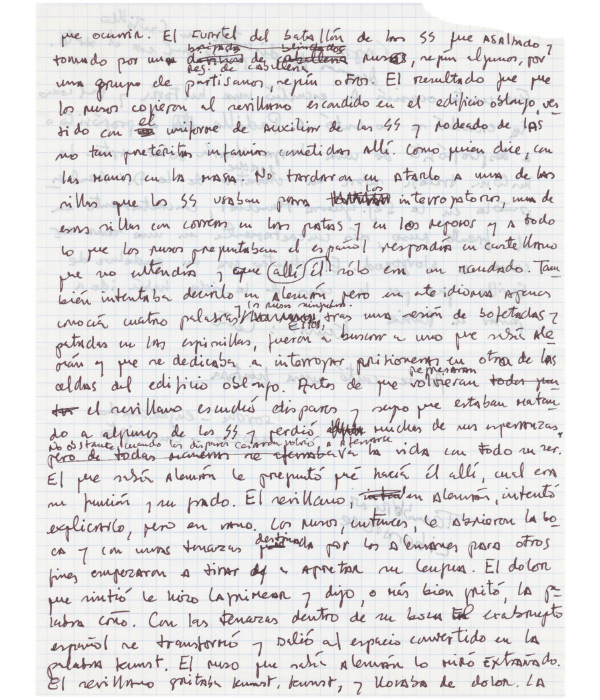 que ocurrir. El cuartel del batallón de los SS fue asaltado y
tomado por una brigada de blindados rusos, según algunos, por
reg. de caballería
una grupo de partisanos, según otros. El resultado fue que
los rusos cogieron al sevillano escondido en el edificio oblongo, ves-
tido con el uniforme de auxiliar de las SS y rodeado de las
no tan pretéritas infamias cometidas allí. Como quien dice, con
las manos en la masa. No tardaron en atarlo a una de las
sillas que los SS usaban para los interrogatorios, una de
esas sillas con correas en las patas y en los reposos y a todo
lo que los rusos preguntaban el español respondía en castellano
que no entendía y que allí él sólo era un mandado. Tam
bién intentaba decirlo en alemán, pero en ese idioma apenas
conocía cuatro palabras, los rusos ninguna.
Estos, tras una sesión de bofetadas y
patadas en las espinillas, fueron a buscar a uno que sabía ale
mán y que se dedicaba a interrogar prisioneros en otra de las
celdas del edificio oblongo. Antes de que regresaran
el sevillano escuchó disparos y supo que estaban matan
do a algunos de los SS y perdió muchas de sus esperanzas,
No obstante, cuando los disparos cesaron volvió a aferrarse
a la vida con todo su ser.
El que sabía alemán le preguntó qué hacía él allí, cual era
su función y su grado. El sevillano, en alemán, intentó
explicarlo, pero en vano. Los rusos, entonces, le abrieron la bo
ca y con unas tenazas destinada por los alemanes para otros
fines empezaron a tirar y a apretar su lengua. El dolor
que sintió le hizo lagrimear y dijo, o más bien gritó, la pa
labra coño. Con las tenazas dentro de su boca el exabrupto
español se transformó y salió al espacio convertido en la
palabra kunst. El ruso que sabía alemán lo miró extrañado.
El sevillano gritaba kunst, kunst, y lloraba de dolor. La